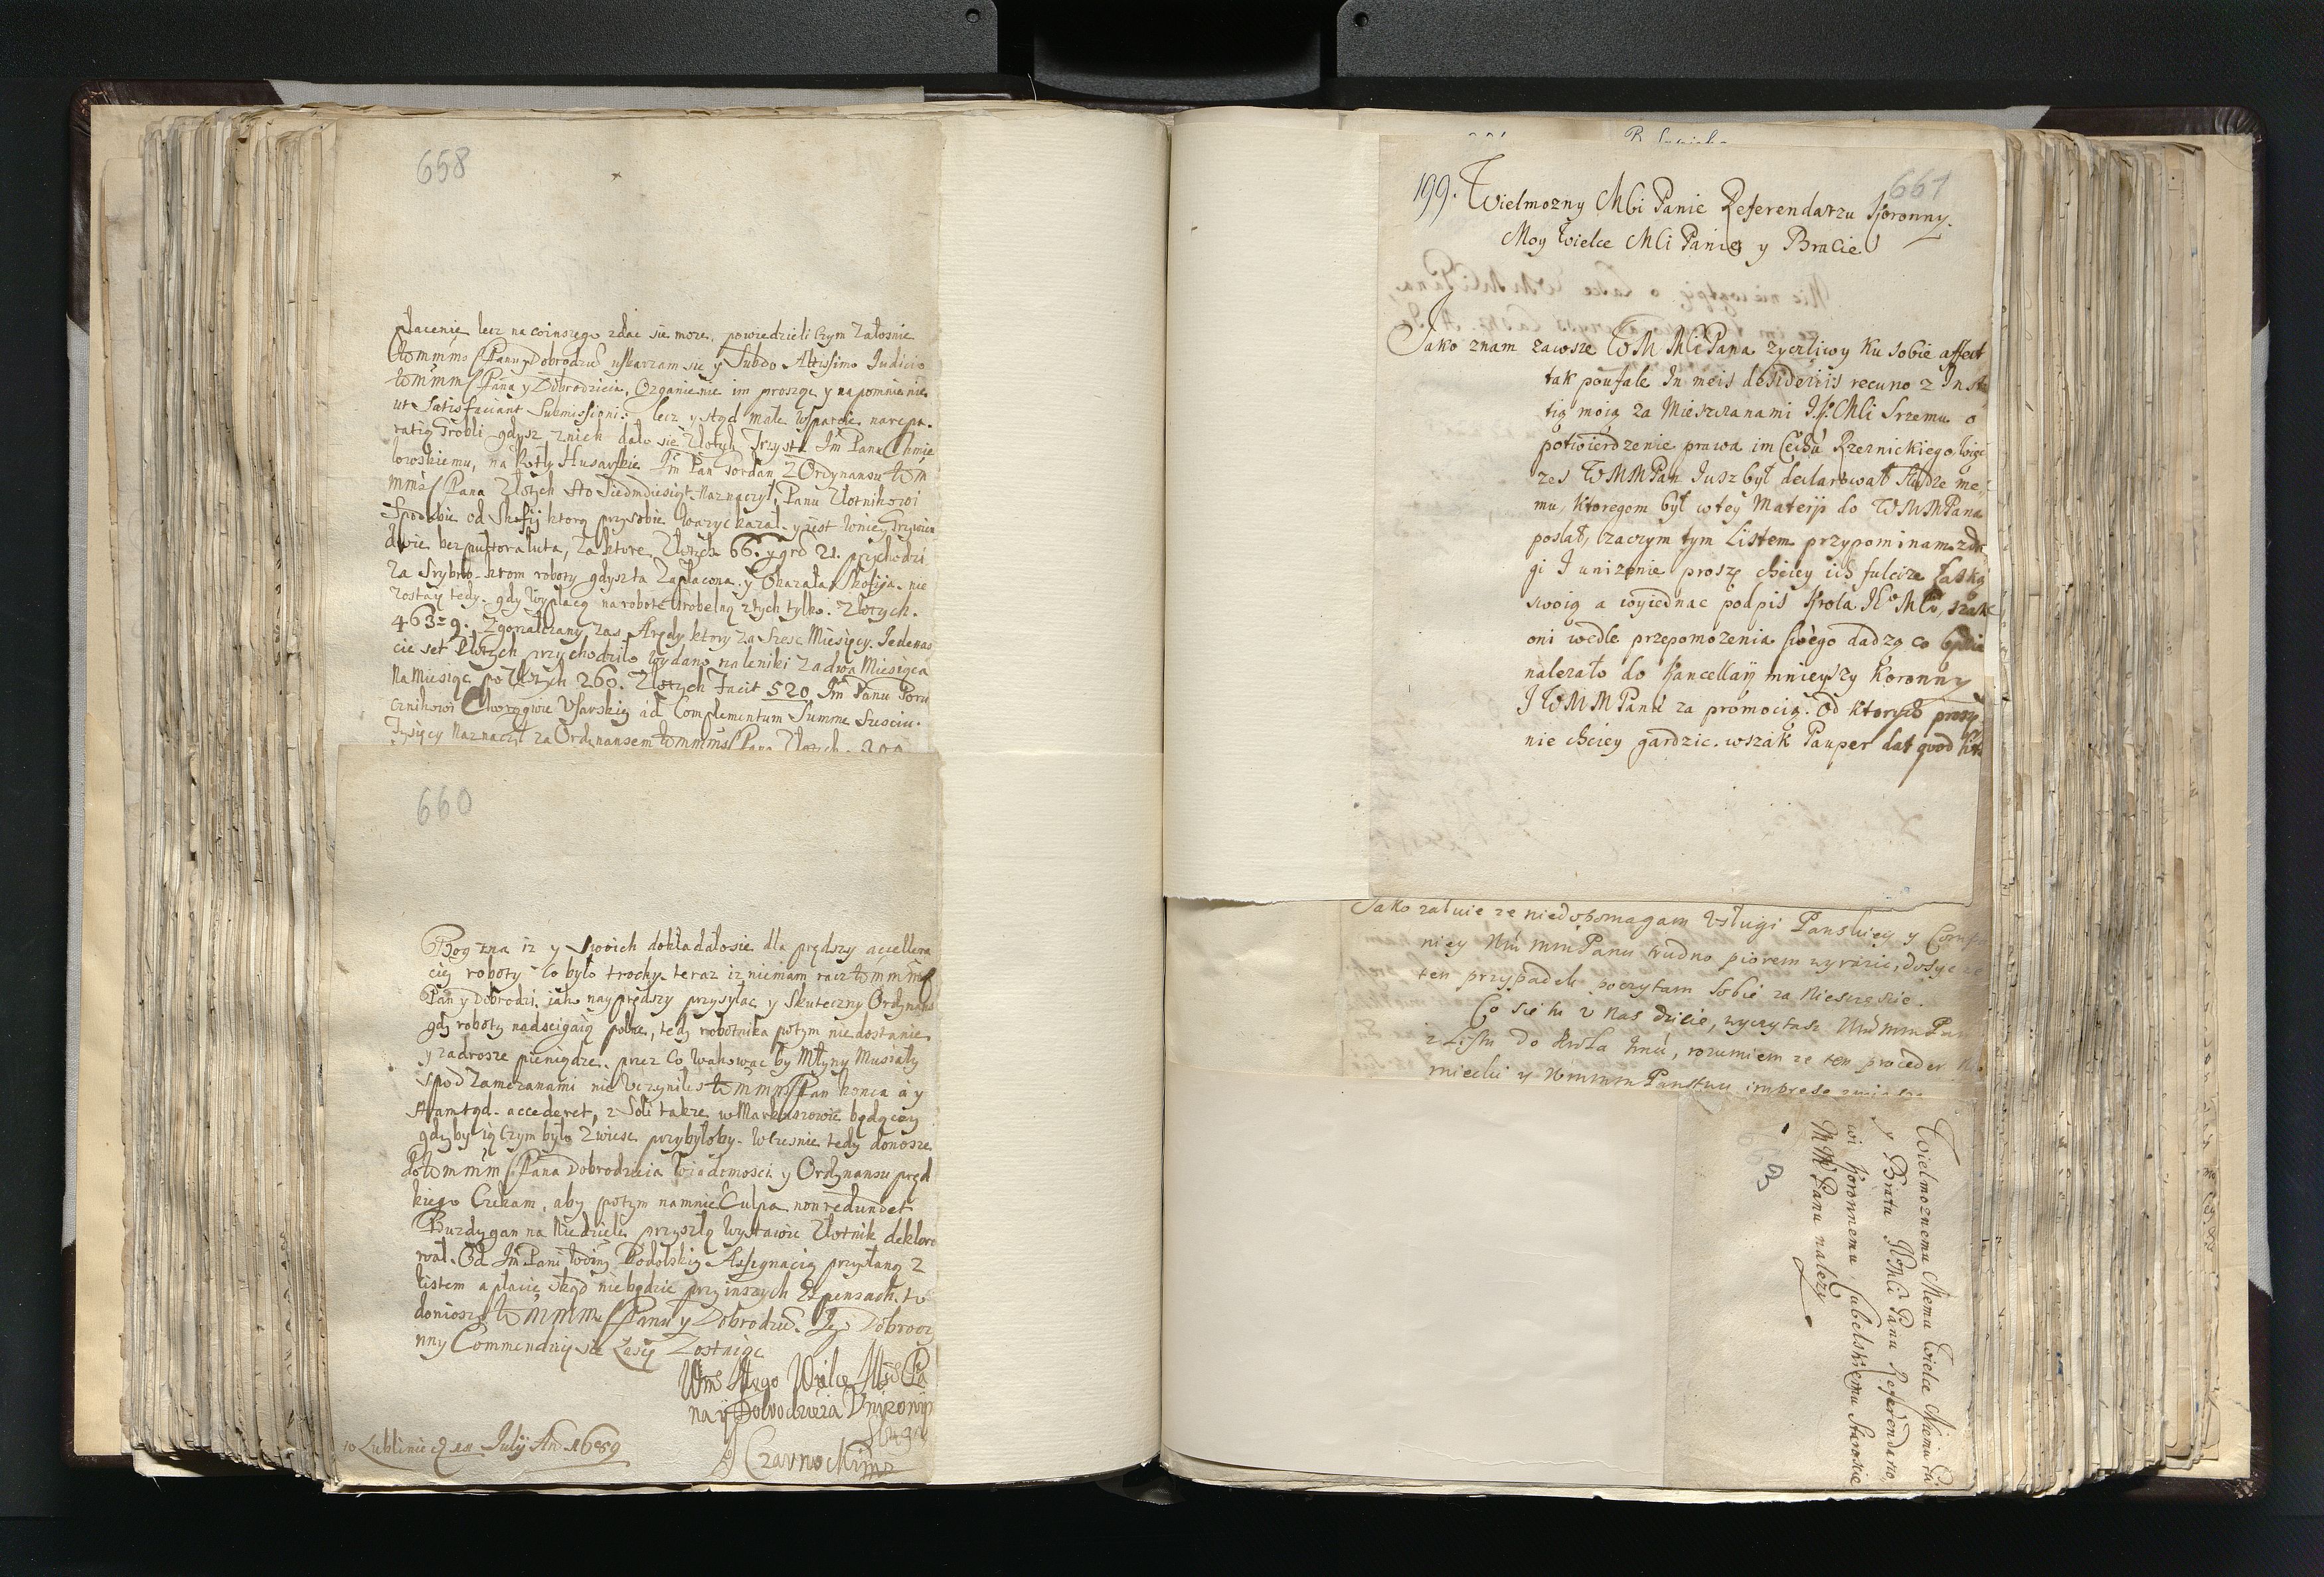 658
płacenie lecz na coinszego zdac sie może, powiedzieli czym Załosnie
Panu y Dobrodzieiowi uskarzam sie y Subdo Altissimo Iudicio
Pana y Dobrodzieia, Ozganienie im proszę y napomnienie
ut Satisfaciant Submissioni: lecz y stąd małe wsparcie narepa
ratią Grobli gdysz znich dało sie Złotych Trzysta Im Panu Chmie
lowskiemu, na Kotły Husarskie Im Pan Jordan Z Ordynansu Wm
Pana Złotych sto Siedmdziesiąt Naznaczył, Panu Złotnikowi
od Skofij ktorą przysobie Wazyc kazał y iest wniey Grzywien
dwie bez pułtora łuta, za ktore Złotych 66. y gro 21. przychodzi
Za Srybro krom roboty gdyszta Zapłacona y Okazała Skofija nie
zostaię tedy gdy wypłacę narobotę Grobelną ztych tylko Złotych
463 = 9. Zgorzałczany zas Arędy ktory za Szesc Miesięcy Jedenas
cie set Złotych przychodziło wydano naleniki Zadwa Miesiąca
Na Miesiąc po Złotych 260. Złotych Facit 520. Im Panu Poru
cznikowi Chorągwie Usarskiey ad Complementum Summe Szesciu
Tysięcy Naznaczył za Ordynansem Pana Złotych 200
660
Bog zna iz y swoich dokładałosie dla prędszy accellera
ciey roboty co było trochy teraz iz niemam racz
Pan y Dobrodzi. jako nayprędszy przysyłac y Skuteczny Ordynans
gdy roboty nadscigaią polne, tedy robotnika potym niedostanie
y zadrosze pieniądze, przez co Wakowac by Młyny Musiały
spod Zamczanami nie Uczyniłes Pan konca a y
stamtąd accederet, z Soli takze w Markuszowie będącey
gdyby ią czym było Zwiesc przybyłoby. Wczesnie tedy donosze
do Pana Dobrodzieia Wiadomosci y Ordynansu pręd
kiego Czekam, aby potym namnie Culpa non redundet
Buzdygan na Niedziele przyszłą Wystawic Złotnik deklaro
wał. Od Im Pani Podolskiey Assignacią przysłaną z
listem a płacic skąd niebędzie przy inszych Expensach. to
donioszy Panu y Dobrodzi. Jego Dobroczy
nny Commenduię sie Łasce Zostaiąc
Wm Mego Wielce Msci Pa
na y Dobrodzieia Uniżonym
Sługą
Czarnocki
w Lublinie d 11 July An 1689
199.
661
Wielmozny Mci Panie Referendarzu Koronny
Moy Wielce Mci Panie y Bracie
Jako znam zawsze WM MCi Pana zyczliwy ku sobie affect
tak poufale In meis desideriis recuro z Insta
tią moią za Mieszczanami J.K.Mci Srzemu o
potwierdzenie prawa im Cechu Rzeznickiego, więc
zes WMMPan Jusz był declarował słudze me
mu, ktoregom był wtey Materyi do WMMPana
posłał, zaczym tym Listem przypominam zdr
gi J unizenie proszę chciey ich fulcire łaską
swoią a wyiednac podpis Krola JE°MCi, wszak
oni wedle przepomozenia swego dadzą co będzie
nalezało do Kancellaÿ mnieyszy Koronny
J WMMPanu za promocią. Od ktorych proszę
nie chciey gardzic. wszak Pauper dat quod
Jako załuie ze niedopomagam Usługi Panskiey y
niey Panu trudno piorem wyrazic, dosyc ze
ten przypadek poczytam sobie za Niesczęscie.
Co sie tu u nas dzieie, wyczytasz
z Listu do Krola Jmci, rozumiem ze ten proceder Nie
miecki y Panstwu impreso
663
Wielmoznemu Memu Wielce Mciemu Panu
y Bratu JE°MCi Panu Referendarzo
wi Koronnemu Lubelskiemu Staroscie
MMPanu nalezy